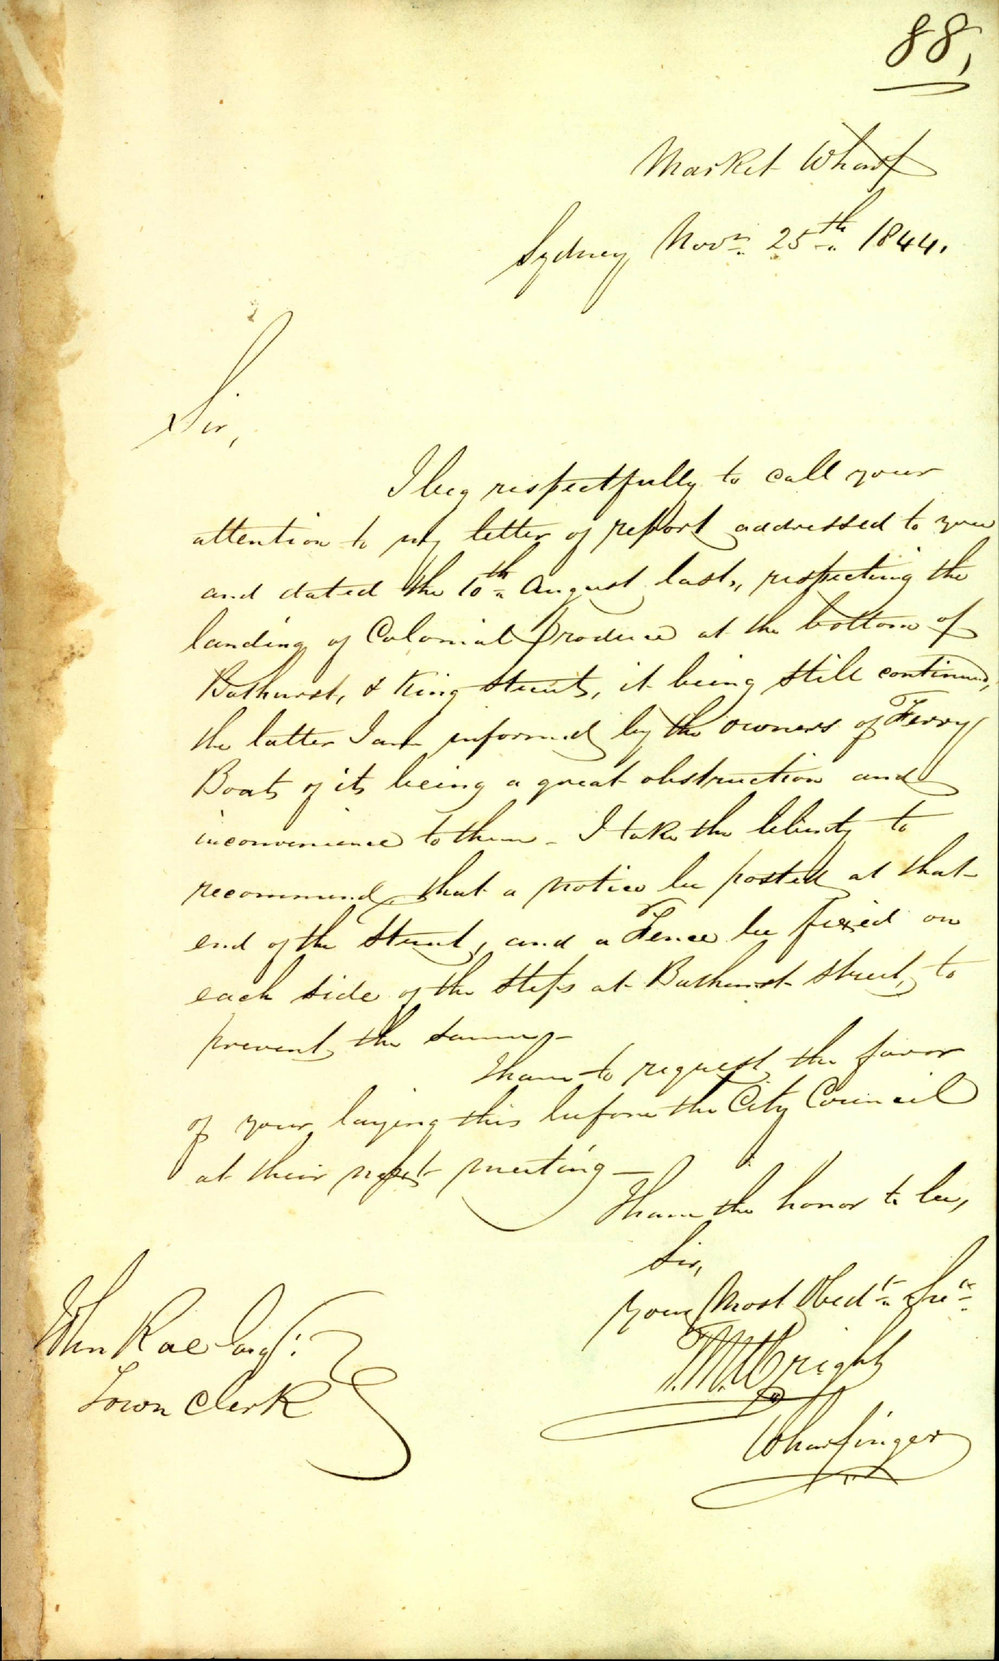 88,
Market Wharf
Sydney Novr. 25th 1844.
Sir,
I beg respectfully to call your
attention to my letter of report addressed to you
and dated the 10th August last, respecting the
landing of Colonial Produce at the bottom of
Bathurst, & King Streets, it being still continued,
the latter I am informed by the owners of Ferry
Boats of its being a great obstruction and
inconvenience to them - I take the liberty to
recommend that a notice be posted at that
end of the Street, and a Fence be fixed on
each side of the steps at Bathurst Street, to
prevent the same,-
I have to request the favor
of your laying this before the City Council
at their next meeting -
I have the honor to be,
Sir,
Your Most Obedt. Sert.
Wright
Wharfinger
John Rae Esqr.
Town Clerk